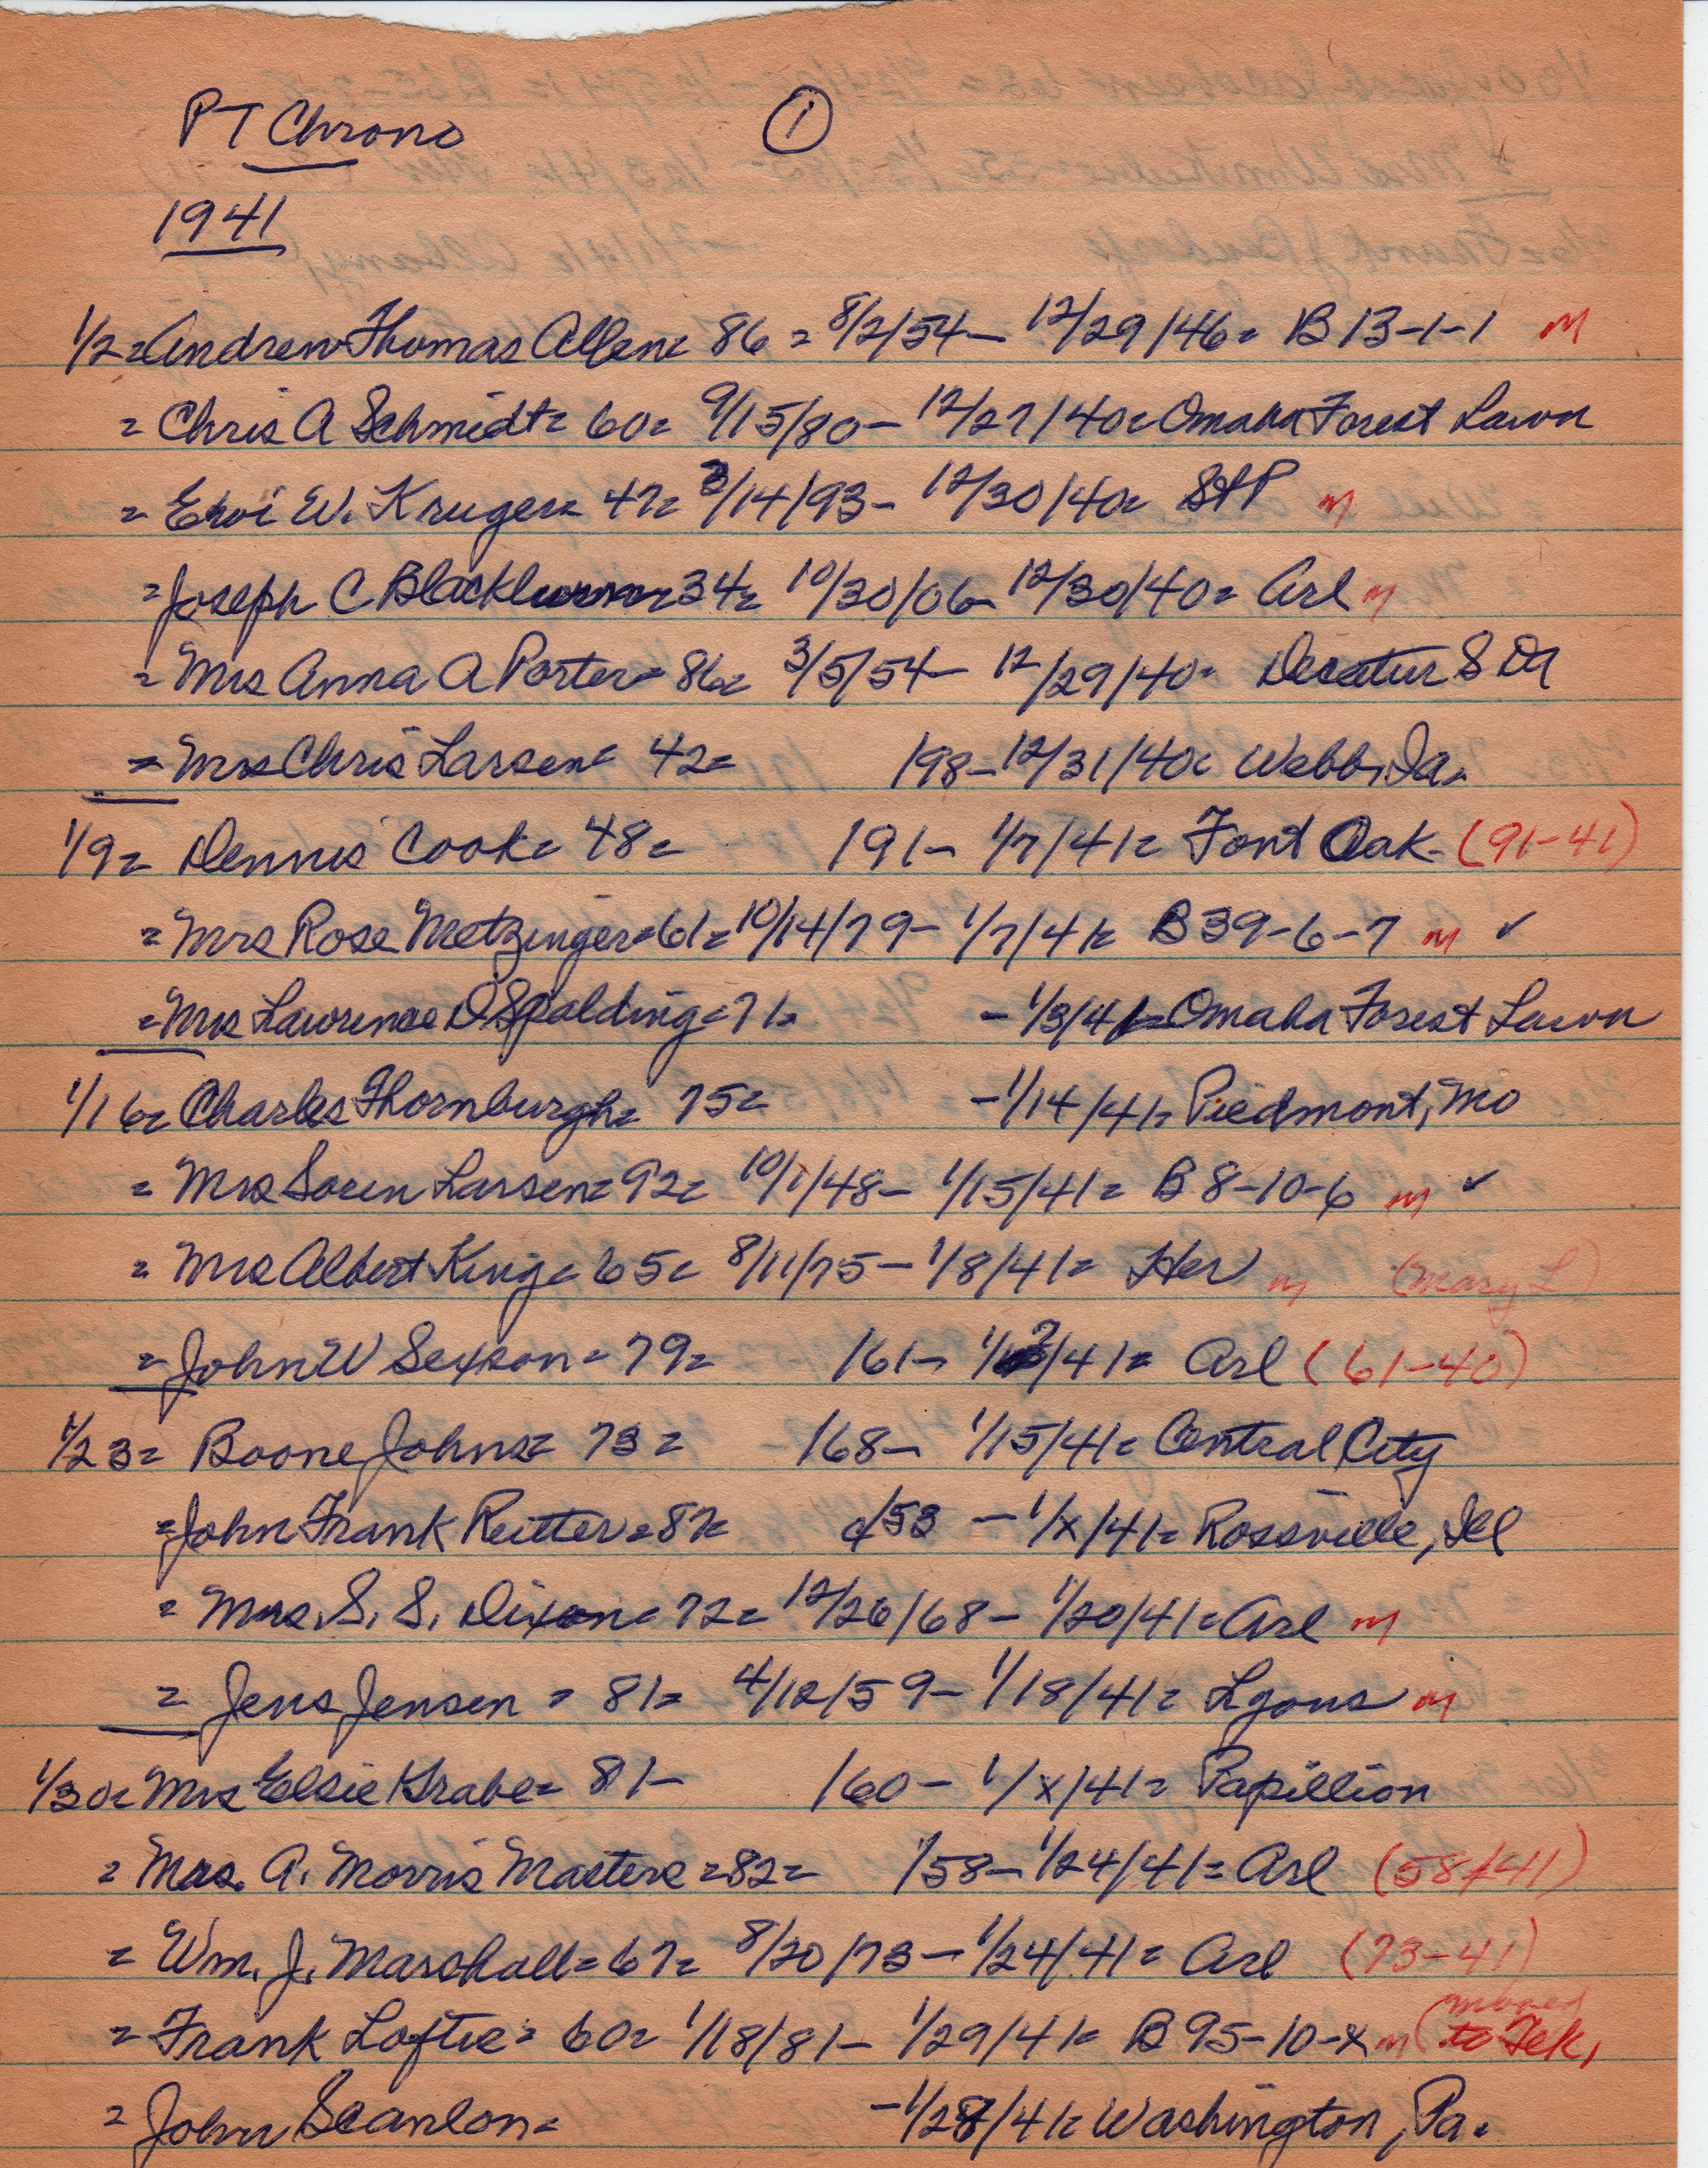 PT Chrono ①
1941
1/2= Andrew Thomas Allen= 86 = 8/2/54- 12/29/46= B 13-1-1 M
= Chris A Schmidt= 60= 9/15/80- 12/27/40= Omaha Forest Lawn
= W. Kruger= 47= 3/14/93- 12/30/40= M
= Joseph C Blackburn= 34= 10/30/06- 12/30/40= Arl M
= Mrs Anna A Porter= 86= 3/5/54- 12/29/40= Decatur S Da
= Mrs Chris Larsen= 42= 198- 12/31/40= Webb, Ia.
1/9= Dennis Cook= 48= 191- 1/7/41= Font Oak (91-41)
= Mrs Rose Metzinger=61= 10/14/79- 1/7/41= B 39-6-7 M ✓
= Mrs Lawrence D Spalding=71= -1/3/41= Omaha Forest Lawn
1/16= Charles Thornburgh= 75= -1/14/41= Piedmont, Mo
= Mrs Soren Larsen= 92= 10/1/48- 1/15/41= B 8-10-6 M ✓
= Mrs Albert King= 65= 8/11/75- 1/8/41= Her M (Mary L)
= John W Sexson= 79= 161- /41= Arl (61-40)
1/23= Boone Johns= 73= 168- 1/15/41= Central City
= John Frank Reitter=87= /53 - 1/x/41= Rossville, Ill
= Mrs. S. S. Dixon= 72= 12/26/68- 1/20/41= Arl M
= Jens Jensen = 81= 4/12/59- 1/18/41= Lyons M
1/30= Mrs Elsie Grabe= 81- 160- 1/x/41= Papillion
= Mrs. A. Morris Masters =82= 158- 1/24/41= Arl (58-41)
= Wm. J. Marshall= 67= 8/20/73- 1/24/41= Arl (73-41)
= Frank Loftis= 60= 1/18/81- 1/29/41= B 95-10-x M (moved to Tek.
= John Scanlon= -1/28/41= Washington, Pa.